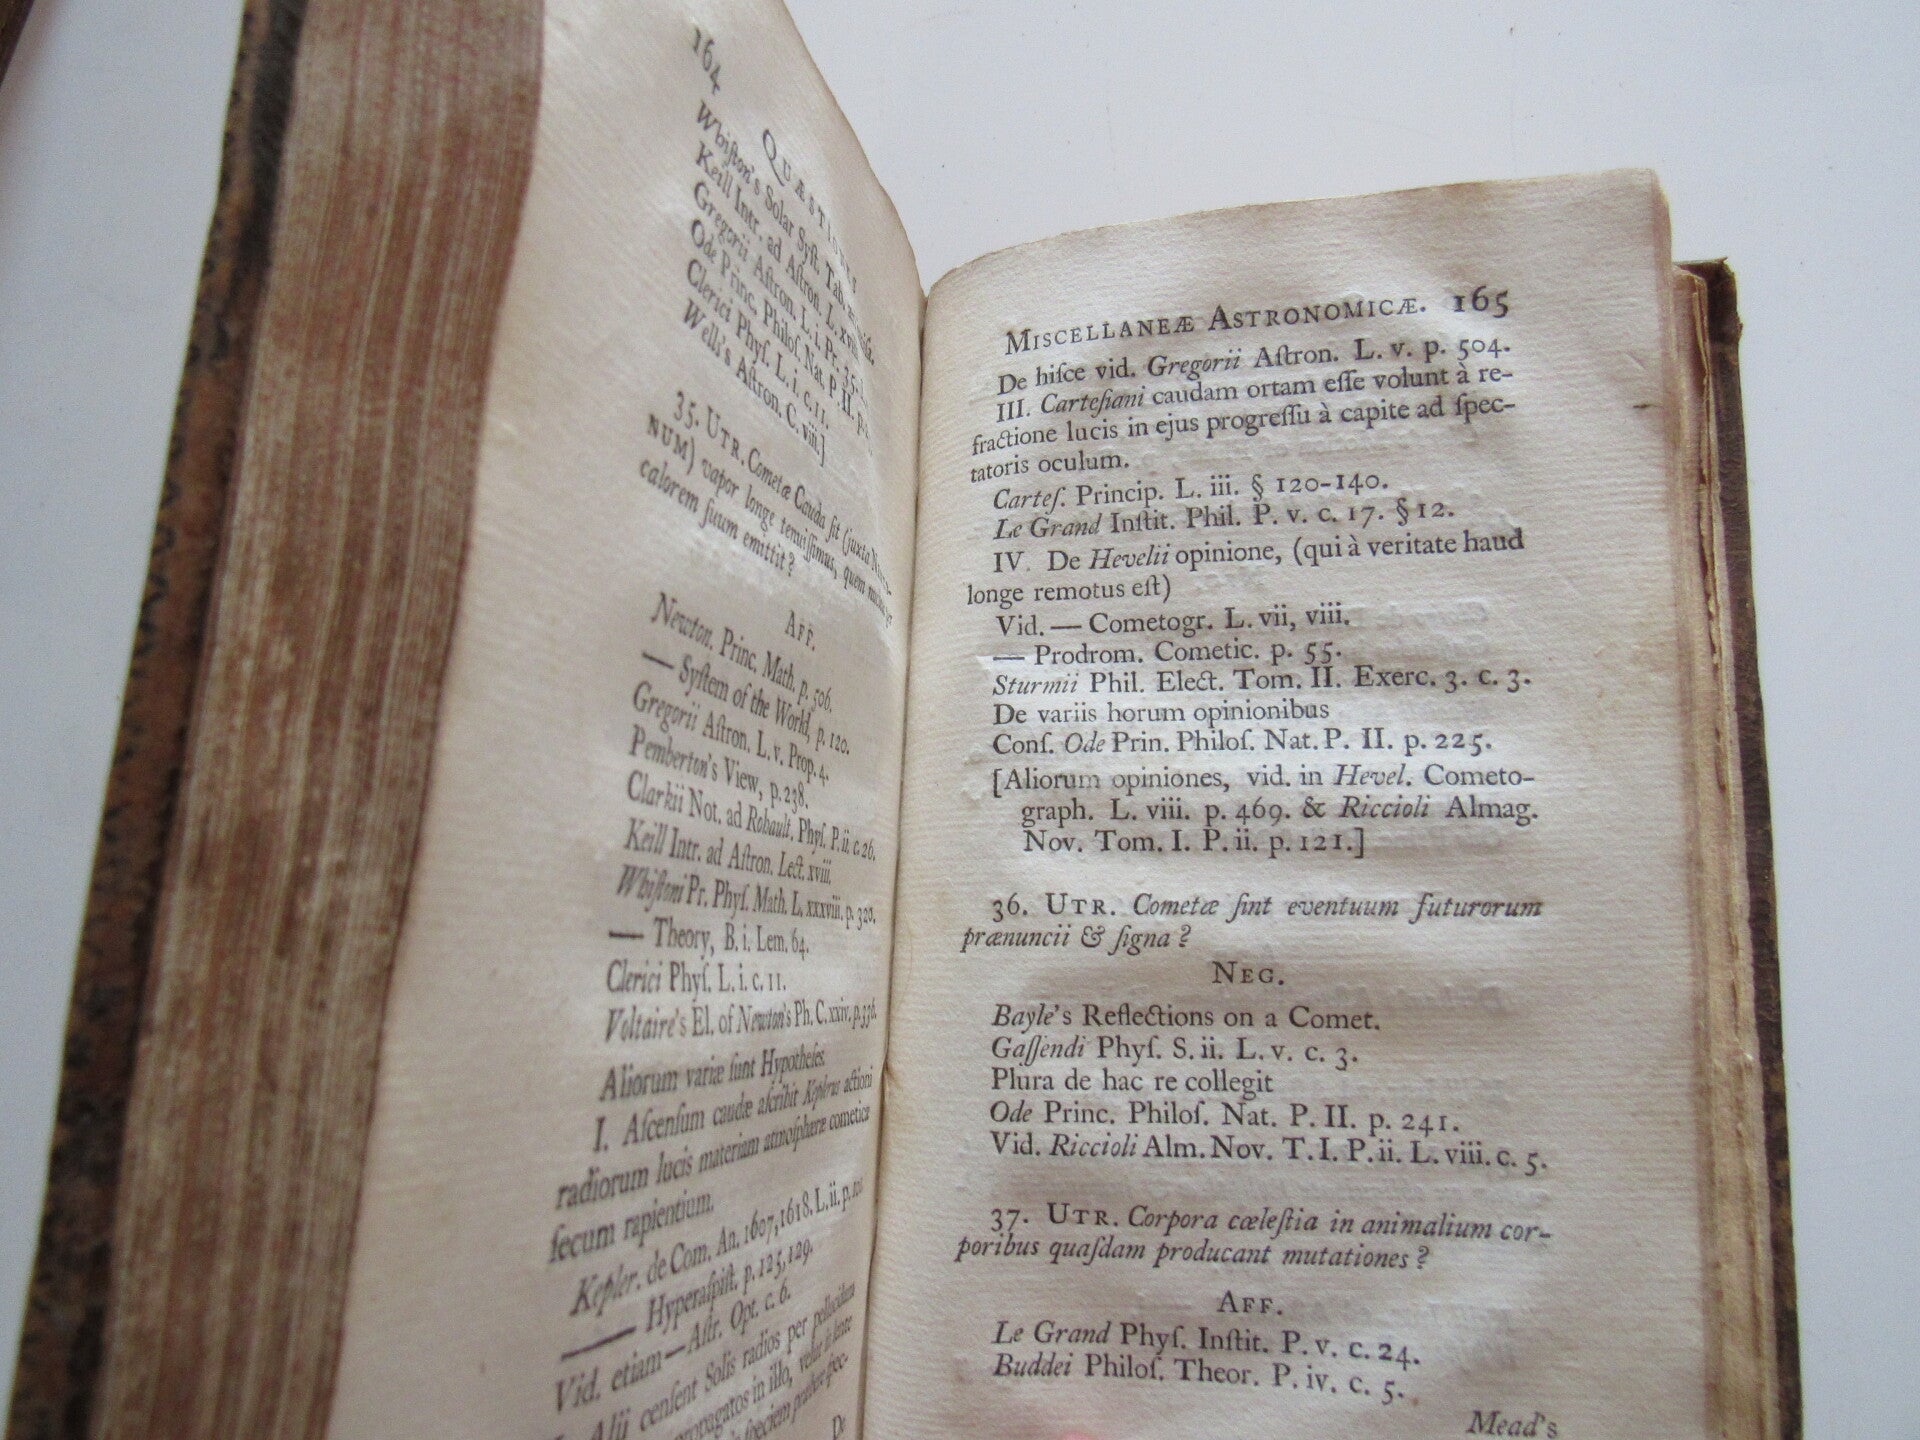 164
QUÆSTIONES
Whiſton's Solar Syſt. Tab.
Keill Intr. ad Aſtron. L. xvii.
Gregorii Aſtron. L. i. Pr. 35.
Ode Princ. Philoſ. Nat. P. II. p.
Clerici Phyſ. L. i. c. 11.
Well's Aſtron. C. viii.]
35. UTR. Cometæ Cauda ſit (juxta
NUM) vapor longe tenuiſſimus, quem
calorem ſuum emittit?
AFF.
Newton. Princ. Math. p. 506.
— Syſtem of the World, p. 120.
Gregorii Aſtron. L. v. Prop. 4.
Pemberton's View, p. 238.
Clarkii Not. ad Rohault. Phyſ. P. ii. c. 26.
Keill Intr. ad Aſtron. Lect. xviii.
Whiſtoni Pr. Phyſ. Math. L. xxxviii. p. 320.
— Theory, B. i. Lem. 64.
Clerici Phyſ. L. i. c. 11.
Voltaire's El. of Newton's Ph. C. xxiv. p. 336.
Aliorum variæ ſunt Hypotheſes
I. Aſcenſum caudæ aſcribit Keplerus actioni
radiorum lucis materiam atmoſphæræ cometicæ
ſecum rapientium.
Kepler. de Com. An. 1607, 1618. L. ii. p.
— Hyperaſpiſt. p. 125, 129.
Vid. etiam — Aſtr. Opt. c. 6.
Alii cenſent Solis radios per pellucidum
propagatos in illo, velut in lente
ſpeciem præbere ſpec-
De
MISCELLANEÆ ASTRONOMICÆ. 165
De hiſce vid. Gregorii Aſtron. L. v. p. 504.
III. Carteſiani caudam ortam eſſe volunt à re-
fractione lucis in ejus progreſſu à capite ad ſpec-
tatoris oculum.
Carteſ. Princip. L. iii. § 120-140.
Le Grand Inſtit. Phil. P. v. c. 17. § 12.
IV. De Hevelii opinione, (qui à veritate haud
longe remotus eſt)
Vid. — Cometogr. L. vii, viii.
— Prodrom. Cometic. p. 55.
Sturmii Phil. Elect. Tom. II. Exerc. 3. c. 3.
De variis horum opinionibus
Conſ. Ode Prin. Philoſ. Nat. P. II. p. 225.
[Aliorum opiniones, vid. in Hevel. Cometo-
graph. L. viii. p. 469. & Riccioli Almag.
Nov. Tom. I. P. ii. p. 121.]
36. UTR. Cometæ ſint eventuum futurorum
prænuncii & ſigna?
NEG.
Bayle's Reflections on a Comet.
Gaſſendi Phyſ. S. ii. L. v. c. 3.
Plura de hac re collegit
Ode Princ. Philoſ. Nat. P. II. p. 241.
Vid. Riccioli Alm. Nov. T. I. P. ii. L. viii. c. 5.
37. UTR. Corpora cæleſtia in animalium cor-
poribus quaſdam producant mutationes?
AFF.
Le Grand Phyſ. Inſtit. P. v. c. 24.
Buddei Philoſ. Theor. P. iv. c. 5.
Mead's